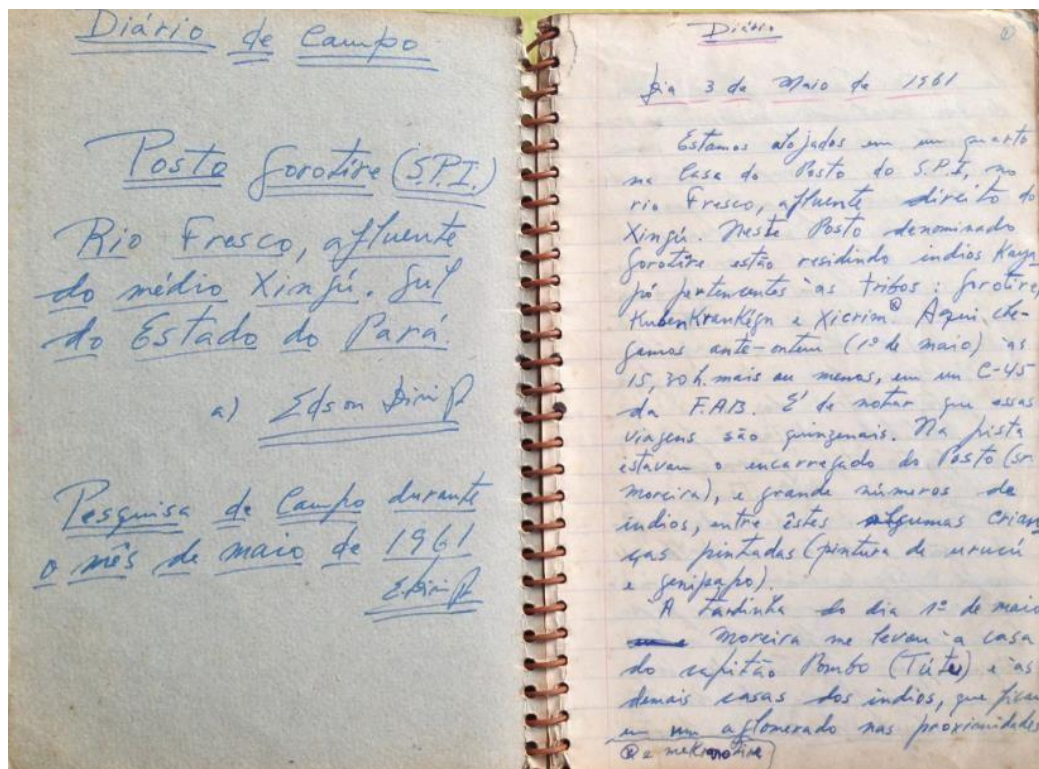 Diário de Campo
Posto Gorotire (S.P.I.)
Rio Fresco, afluente
do médio Xingú. Sul
do Estado do Pará.
a) Edson Diniz
Pesquisa de Campo durante
o mês de maio de 1961
EDiniz
Diário
1
Dia 3 de Maio de 1961
Estamos alojados em um quarto
na Casa do Posto do S.P.I, no
rio Fresco, afluente direito do
Xingú. Neste Posto denominado
Gorotire estão residindo indios Kaya
pó pertencentes às tribos: Gorotire,
KubenKranKêgn e Xicrim⊗ Aqui che-
gamos ante-ontem (1º de maio) às
15,30h. mais ou menos, em um C-45
da F.A.B. É de notar que essas
viagens são quinzenais. Na pista
estavam o encarregado do Posto (sr
Moreira), e grande números de
indios, entre êstes algumas crian
ças pintadas (pintura de urucú
e genipapo).
A tardinha do dia 1º de maio
Moreira me levou à casa
do capitão Pombo (Tút) e às
demais casas dos indios, que ficam
em um aglomerado nas proximidades
⊗ e meKranotire